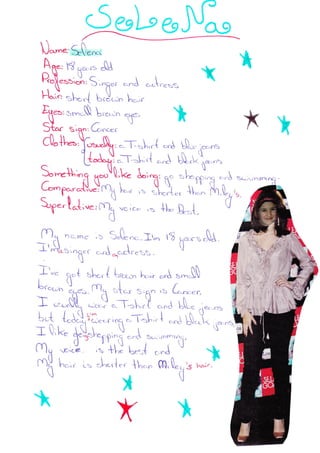 SeLeNa
Name: Selena
Age: 18 years old
Profession: Singer and actress
Hair: short brown hair
Eyes: small brown eyes.
Star sign: Cancer
Clothes: usually: a T-shirt and blue jeans
today: a T-shirt and black jeans
Something you like doing: go shopping and swimming.
Comparative: My hair is shorter than Miley's.
Superlative: My voice is the best.
My name is Selena. I'm 18 years old.
I'm a singer and actress.
I've got short brown hair and small
brown eyes. My star sign is Cancer.
I usually wear a T-shirt and blue jeans
but today I'm wearing a T-shirt and black jeans
I like go shopping and swimming.
My voice is the best and
My hair is shorter than Miley's hair.